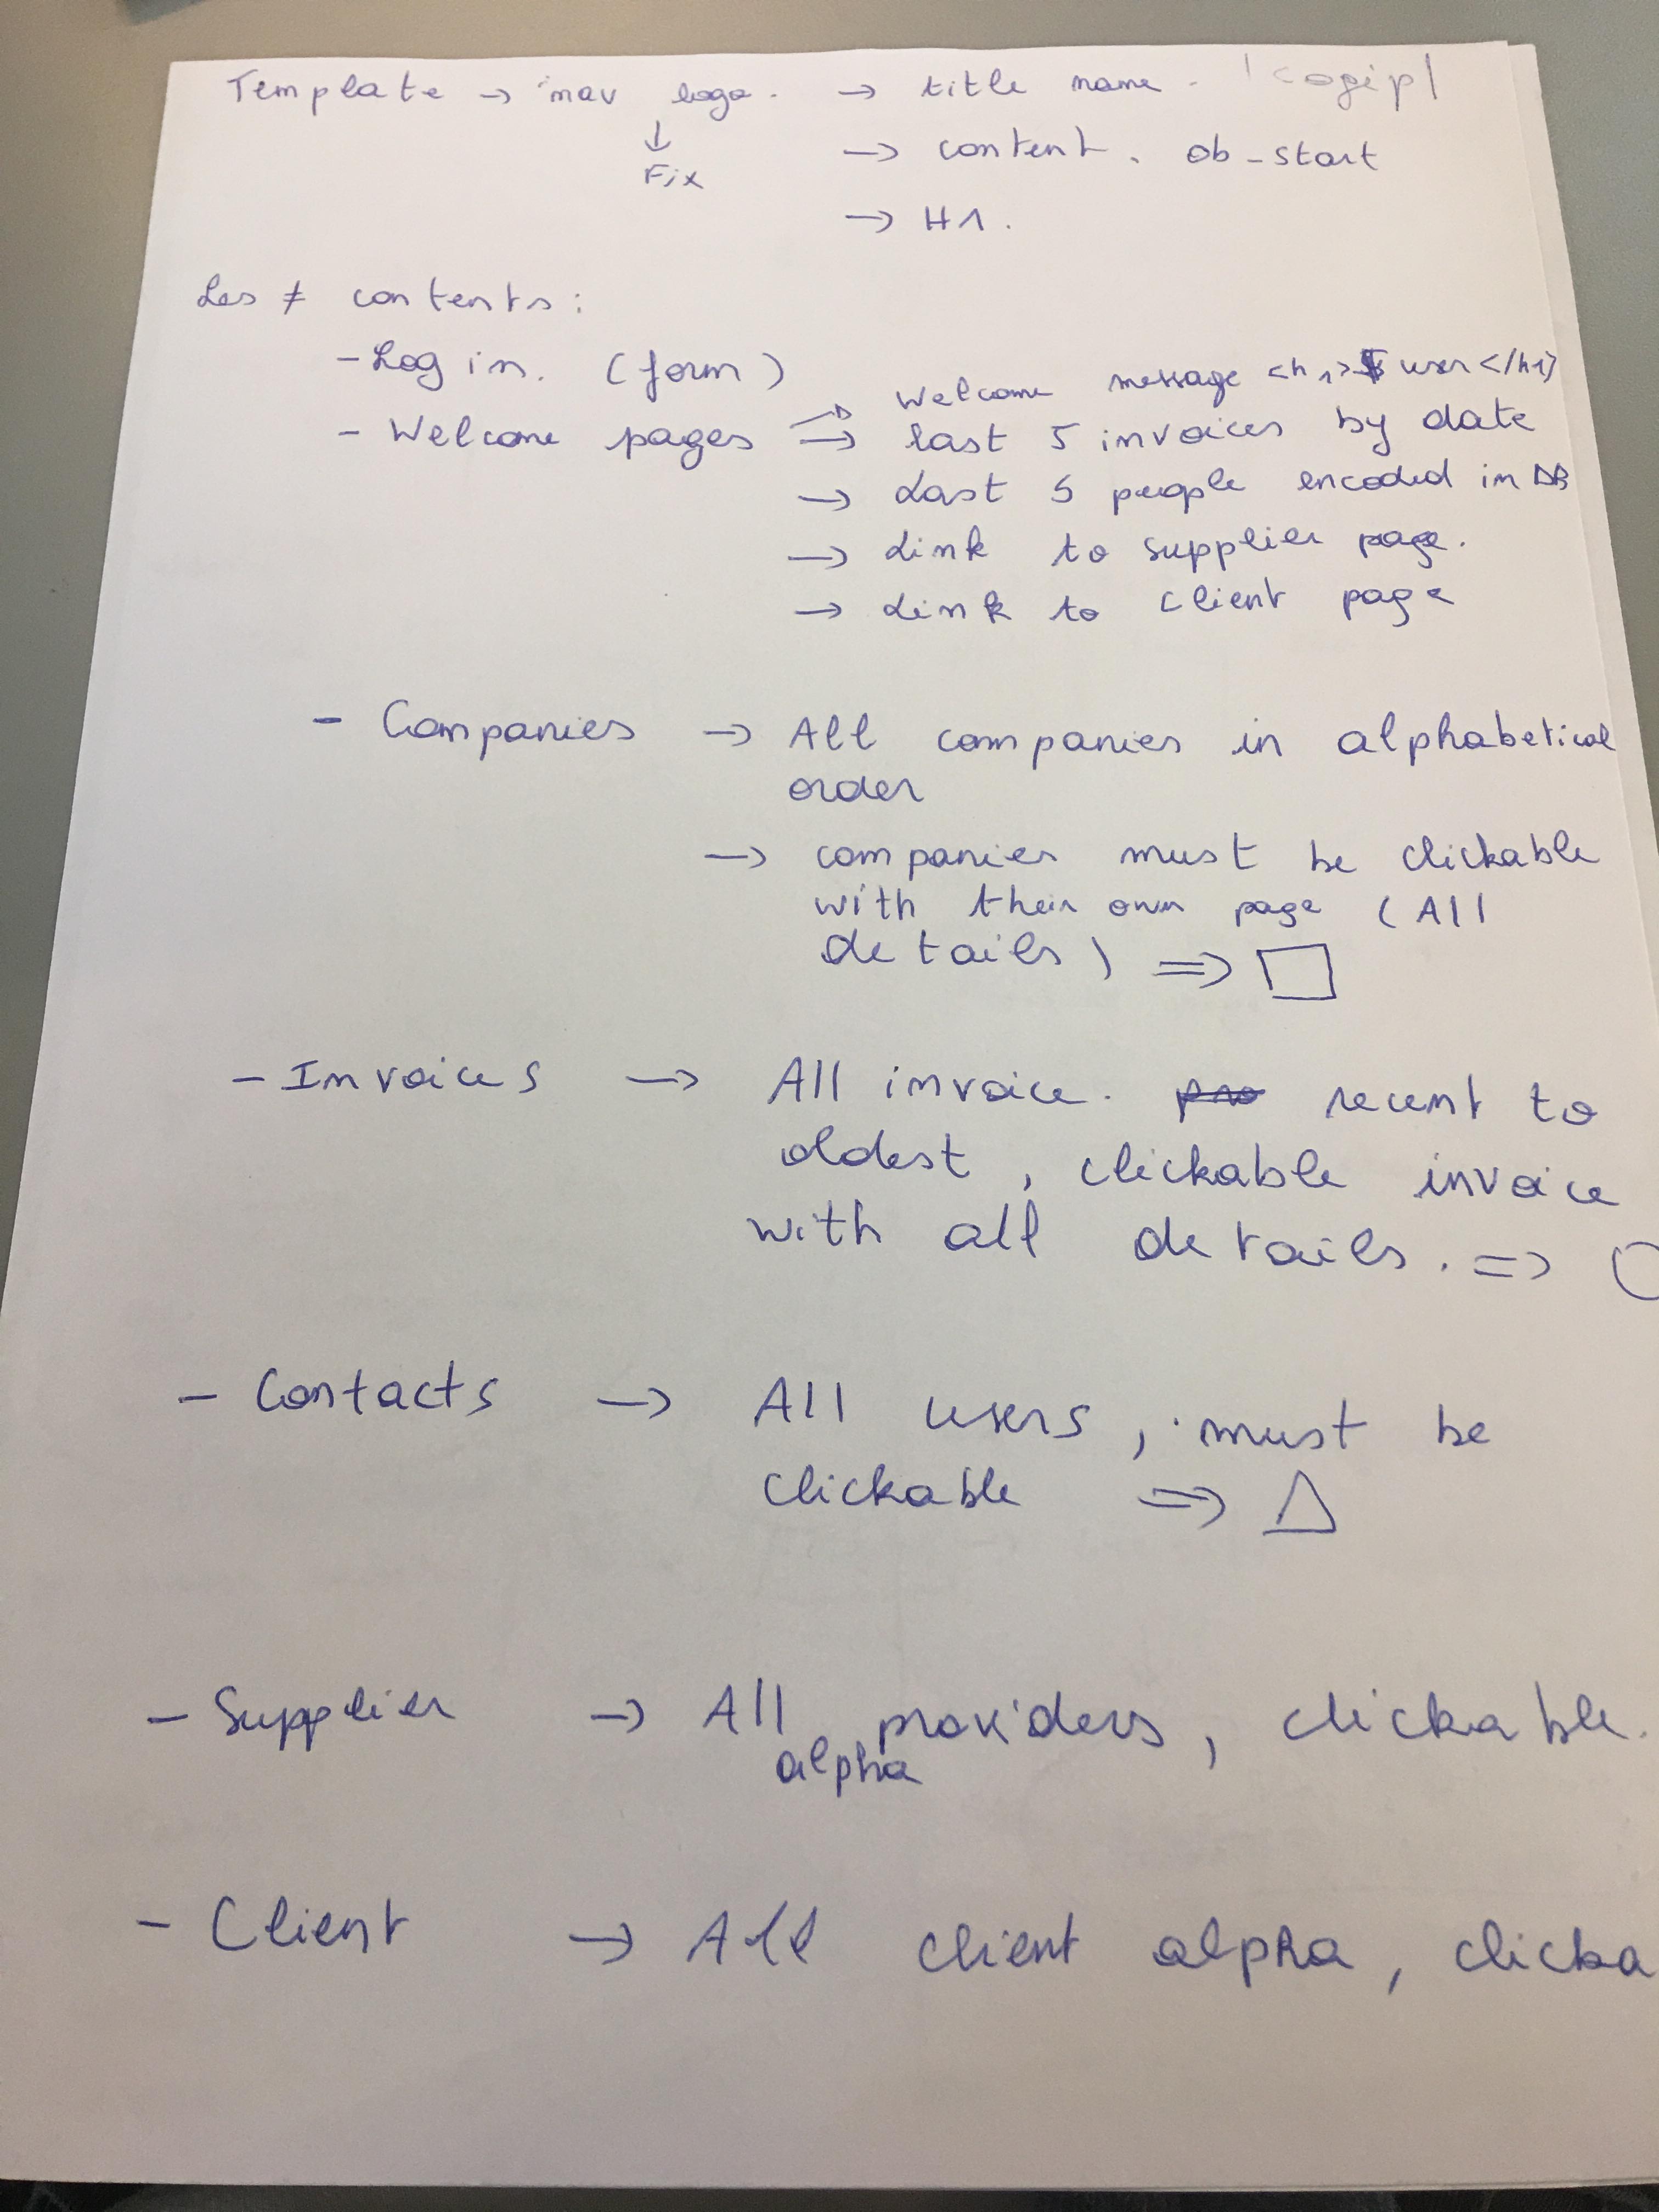 Template → nav logo. → title name. |cogip|
↓
Fix
→ content. ob_start
→ H1.
Les ≠ contents:
- Log in. (form)
→ Welcome message <h1>$ user</h1>
- Welcome pages → last 5 invoices by date
→ Last 5 people encoded in DB
→ Link to supplier page.
→ Link to client page
- Companies → All companies in alphabetical
order
→ companies must be clickable
with their own page (All
details) ⇒ □
- Invoices → All invoice. recent to
oldest, clickable invoice
with all details. ⇒ ○
- Contacts → All users, must be
clickable ⇒ △
- Supplier → All providers, clickable.
alpha
- Client → All client alpha, clicka